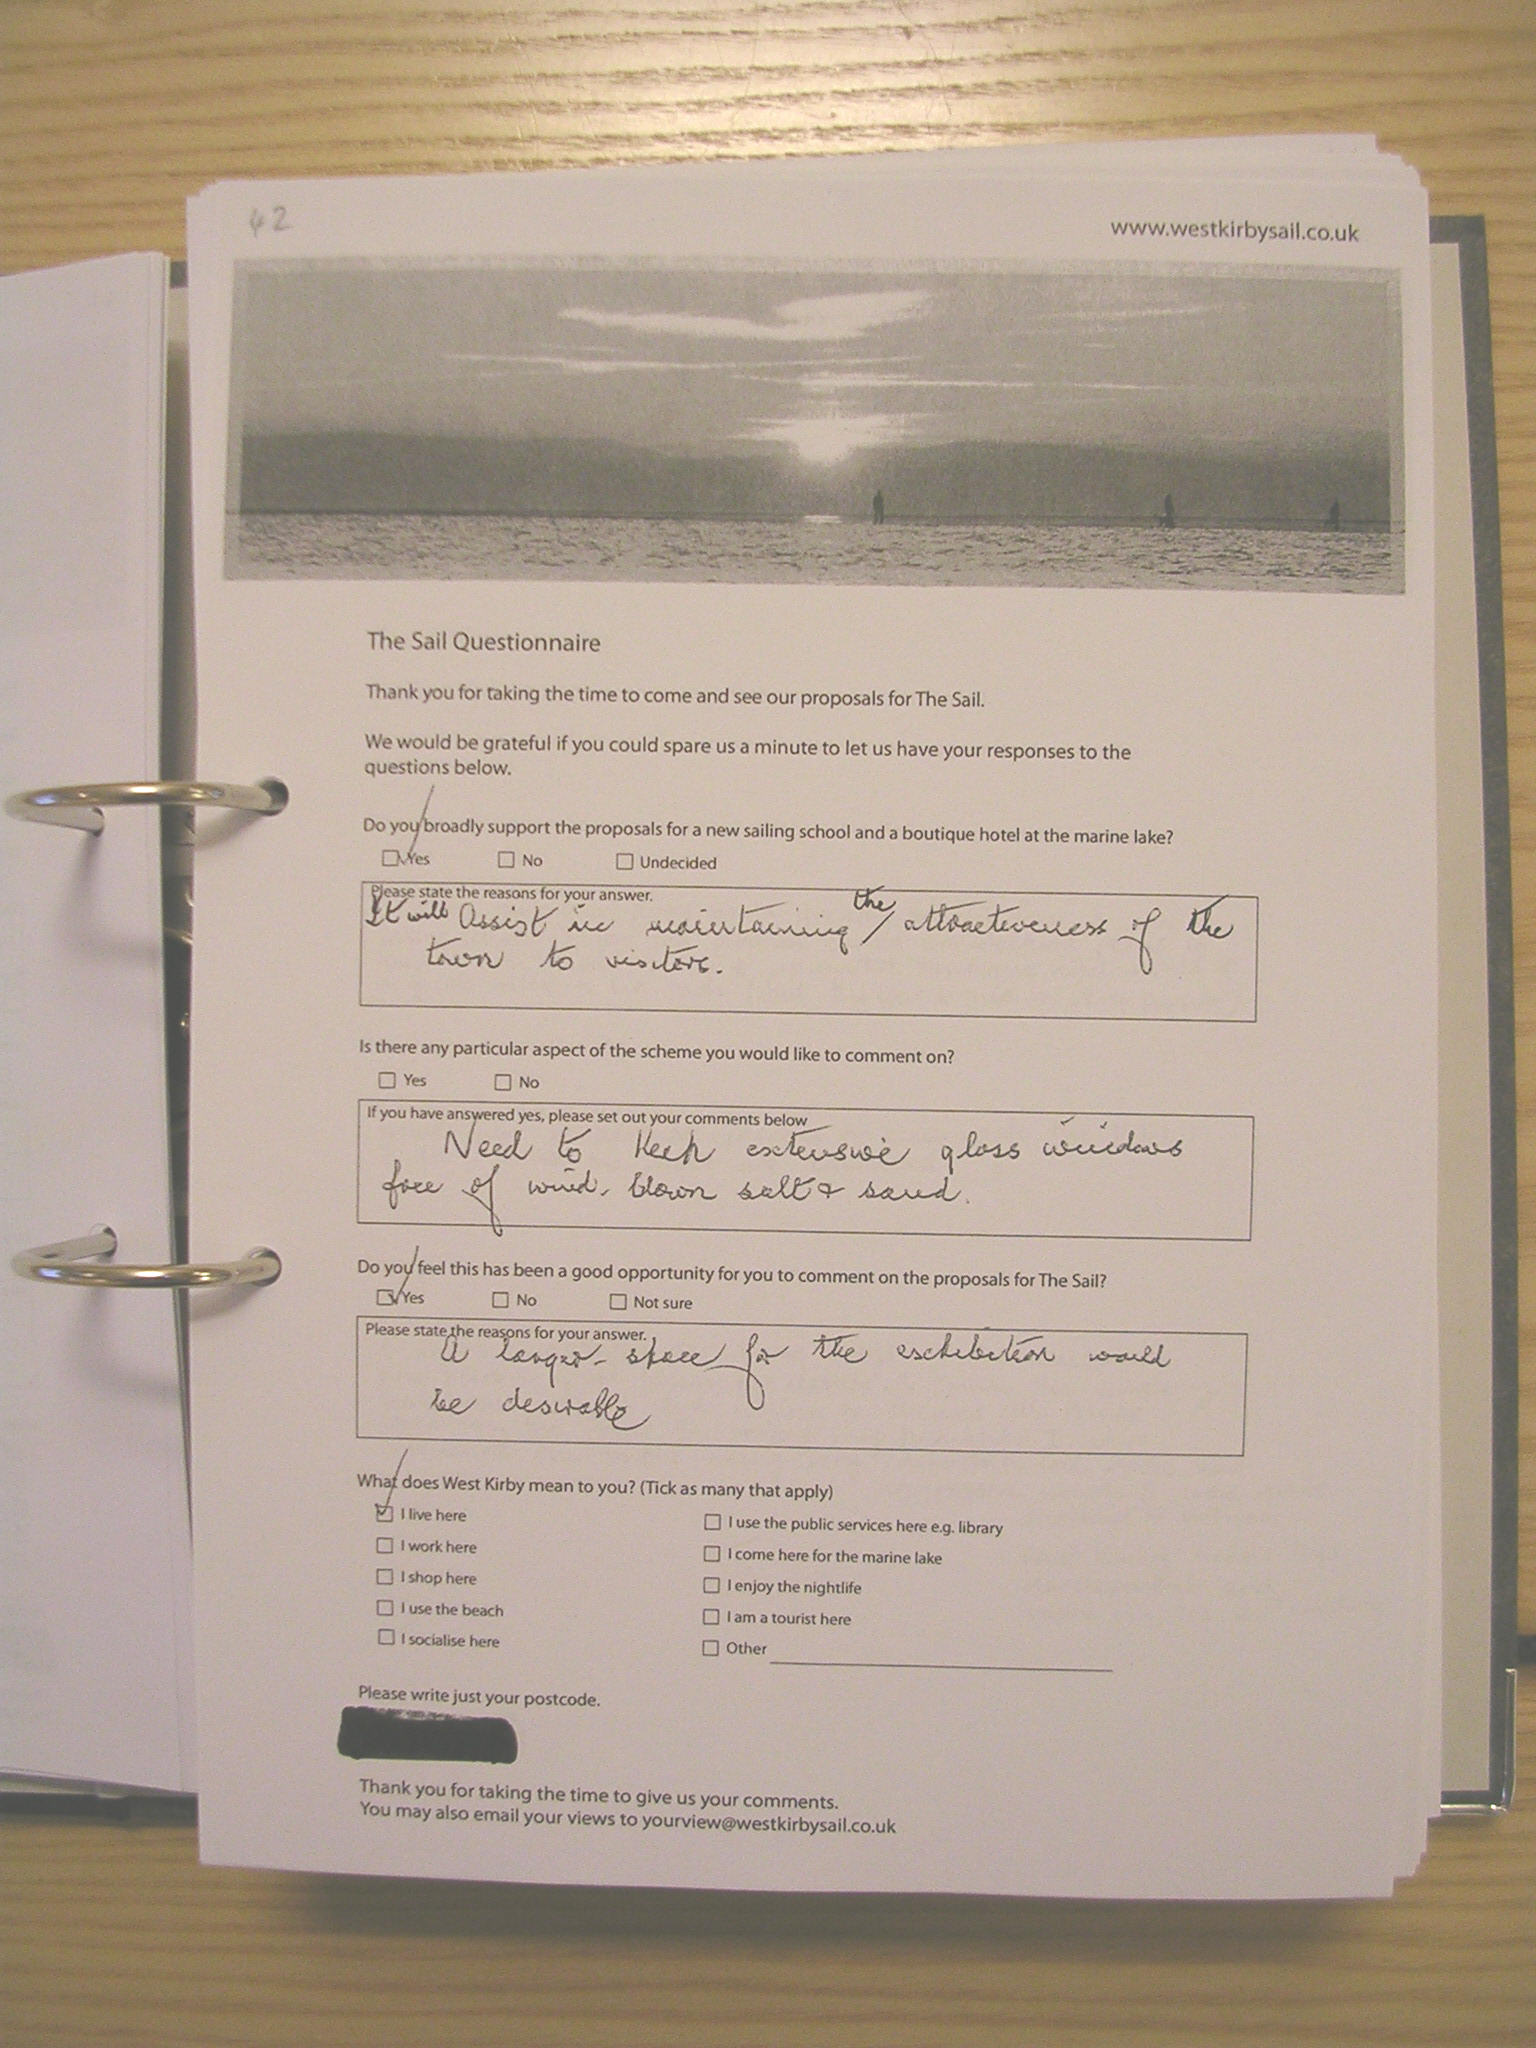 42
www.westkirbysail.co.uk
The Sail Questionnaire
Thank you for taking the time to come and see our proposals for The Sail.
We would be grateful if you could spare us a minute to let us have your responses to the
questions below.
Do you broadly support the proposals for a new sailing school and a boutique hotel at the marine lake?
Yes No Undecided
Please state the reasons for your answer.
It will Assist in maintaining the attractiveness of the
town to visitors.
Is there any particular aspect of the scheme you would like to comment on?
Yes No
If you have answered yes, please set out your comments below
Need to Keep extensive glass windows
free of wind-blown salt & sand.
Do you feel this has been a good opportunity for you to comment on the proposals for The Sail?
Yes No Not sure
Please state the reasons for your answer.
A larger space for the exhibition would
be desirable
What does West Kirby mean to you? (Tick as many that apply)
I live here
I work here
I shop here
I use the beach
I socialise here
I use the public services here e.g. library
I come here for the marine lake
I enjoy the nightlife
I am a tourist here
Other
Please write just your postcode.
Thank you for taking the time to give us your comments.
You may also email your views to yourview@westkirbysail.co.uk